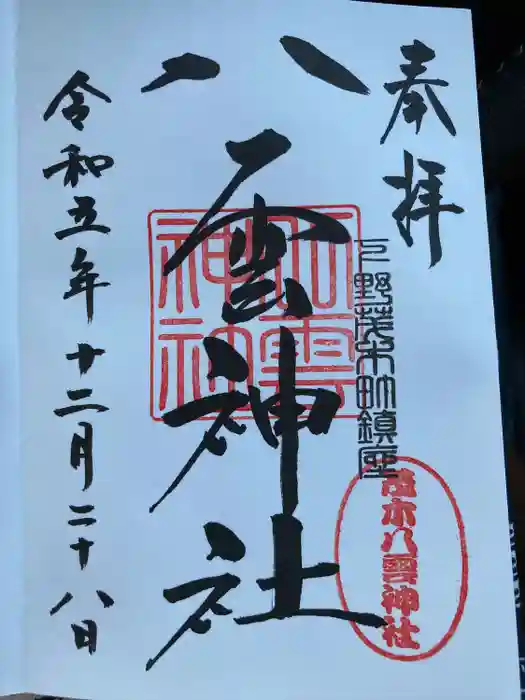 奉拝
下野茂木町鎮座
八雲神社
八雲神社
茂木八雲神社
令和五年十二月二十八日